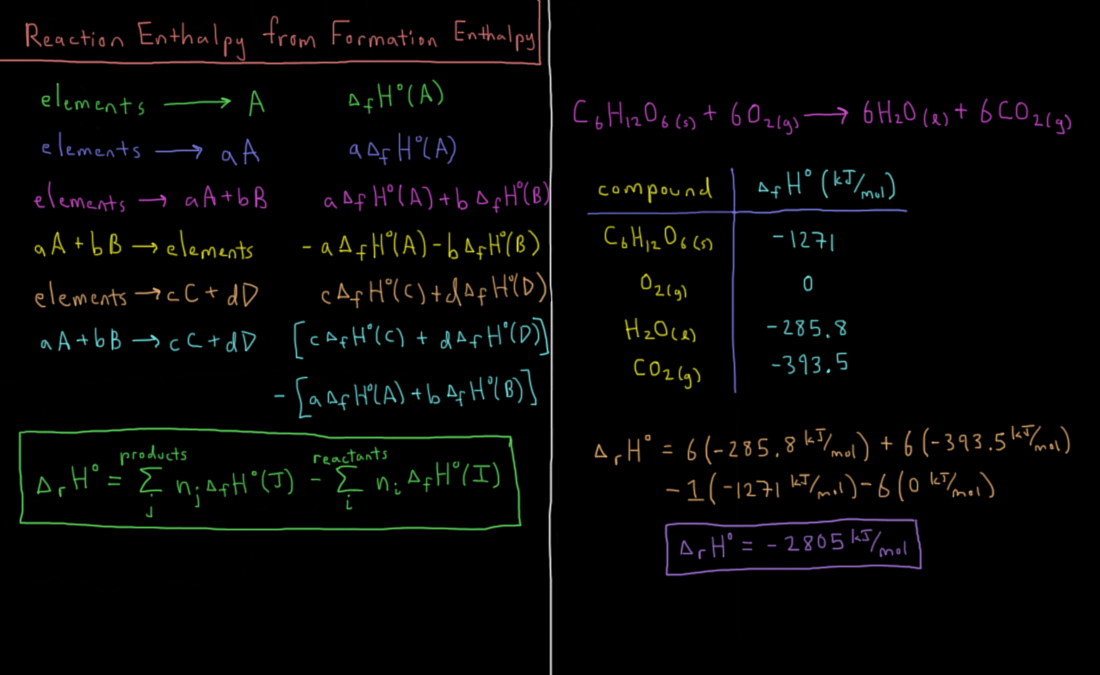 Reaction Enthalpy from Formation Enthalpy
elements → A ΔfH°(A)
elements → aA aΔfH°(A)
elements → aA+bB aΔfH°(A)+bΔfH°(B)
aA+bB → elements -aΔfH°(A)-bΔfH°(B)
elements → cC+dD cΔfH°(C)+dΔfH°(D)
aA+bB → cC+dD [cΔfH°(C) + dΔfH°(D)]
-[aΔfH°(A)+bΔfH°(B)]
products reactants
ΔrH° = Σ njΔfH°(J) - Σ niΔfH°(I)
j i
C6H12O6(s) + 6O2(g) → 6H2O(l) + 6CO2(g)
compound ΔfH° (kJ/mol)
C6H12O6(s) -1271
O2(g) 0
H2O(l) -285.8
CO2(g) -393.5
ΔrH° = 6(-285.8 kJ/mol) + 6(-393.5 kJ/mol)
-1(-1271 kJ/mol)-6(0 kJ/mol)
ΔrH° = -2805 kJ/mol